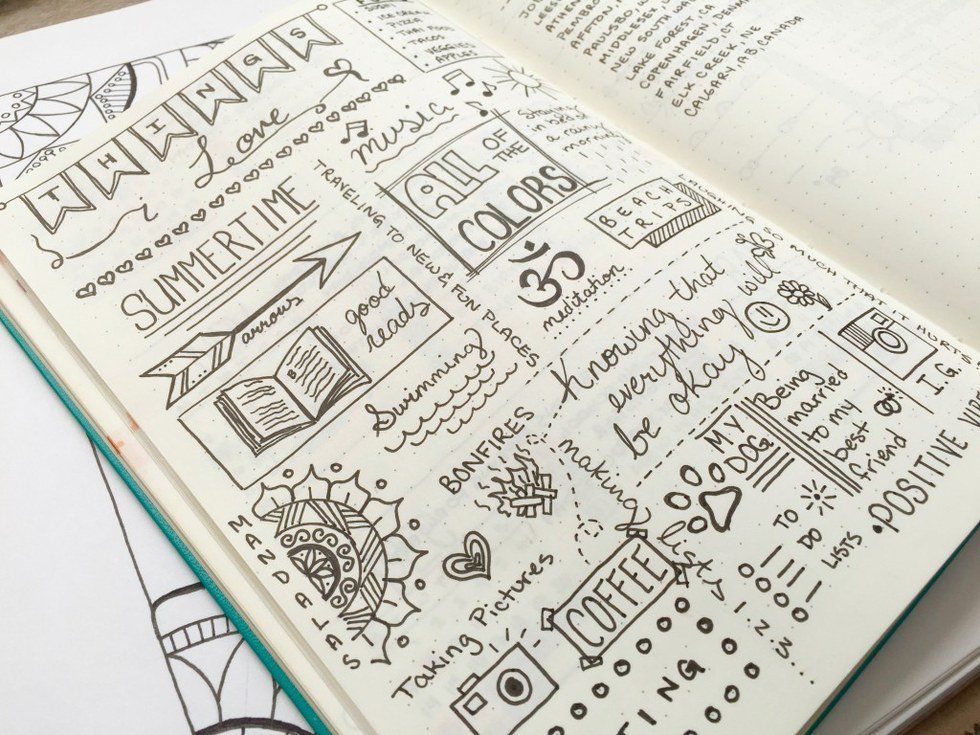 THINGS
i Love
• ICE CREAM
• PIZZA
• THAI FOOD
• TACOS
• VEGGIES
• APPLES
music
SUMMERTIME
TRAVELING TO NEW & FUN PLACES
ALL OF THE
COLORS
Staying
in bed on
a rainy
BEACH
TRIPS
arrows
good
reads
meditation
Swimming
Knowing that
everything will
be okay
LAUGHING SO HARD THAT IT HURTS
I.G.
MANDALAS
BONFIRES
making
lists
MY
DOG
Being
married
to my
best
friend
• POSITIVE
TO
DO
LISTS
1.
2.
3.
Taking Pictures
COFFEE
TING
PAULSBO, W
NEW SOUTH WA
LAKE FOREST, CA
COPENHAGEN, DENMA
FAIRFIELD, CT
ELK CREEK, NE
CALGARY, AB, CANADA